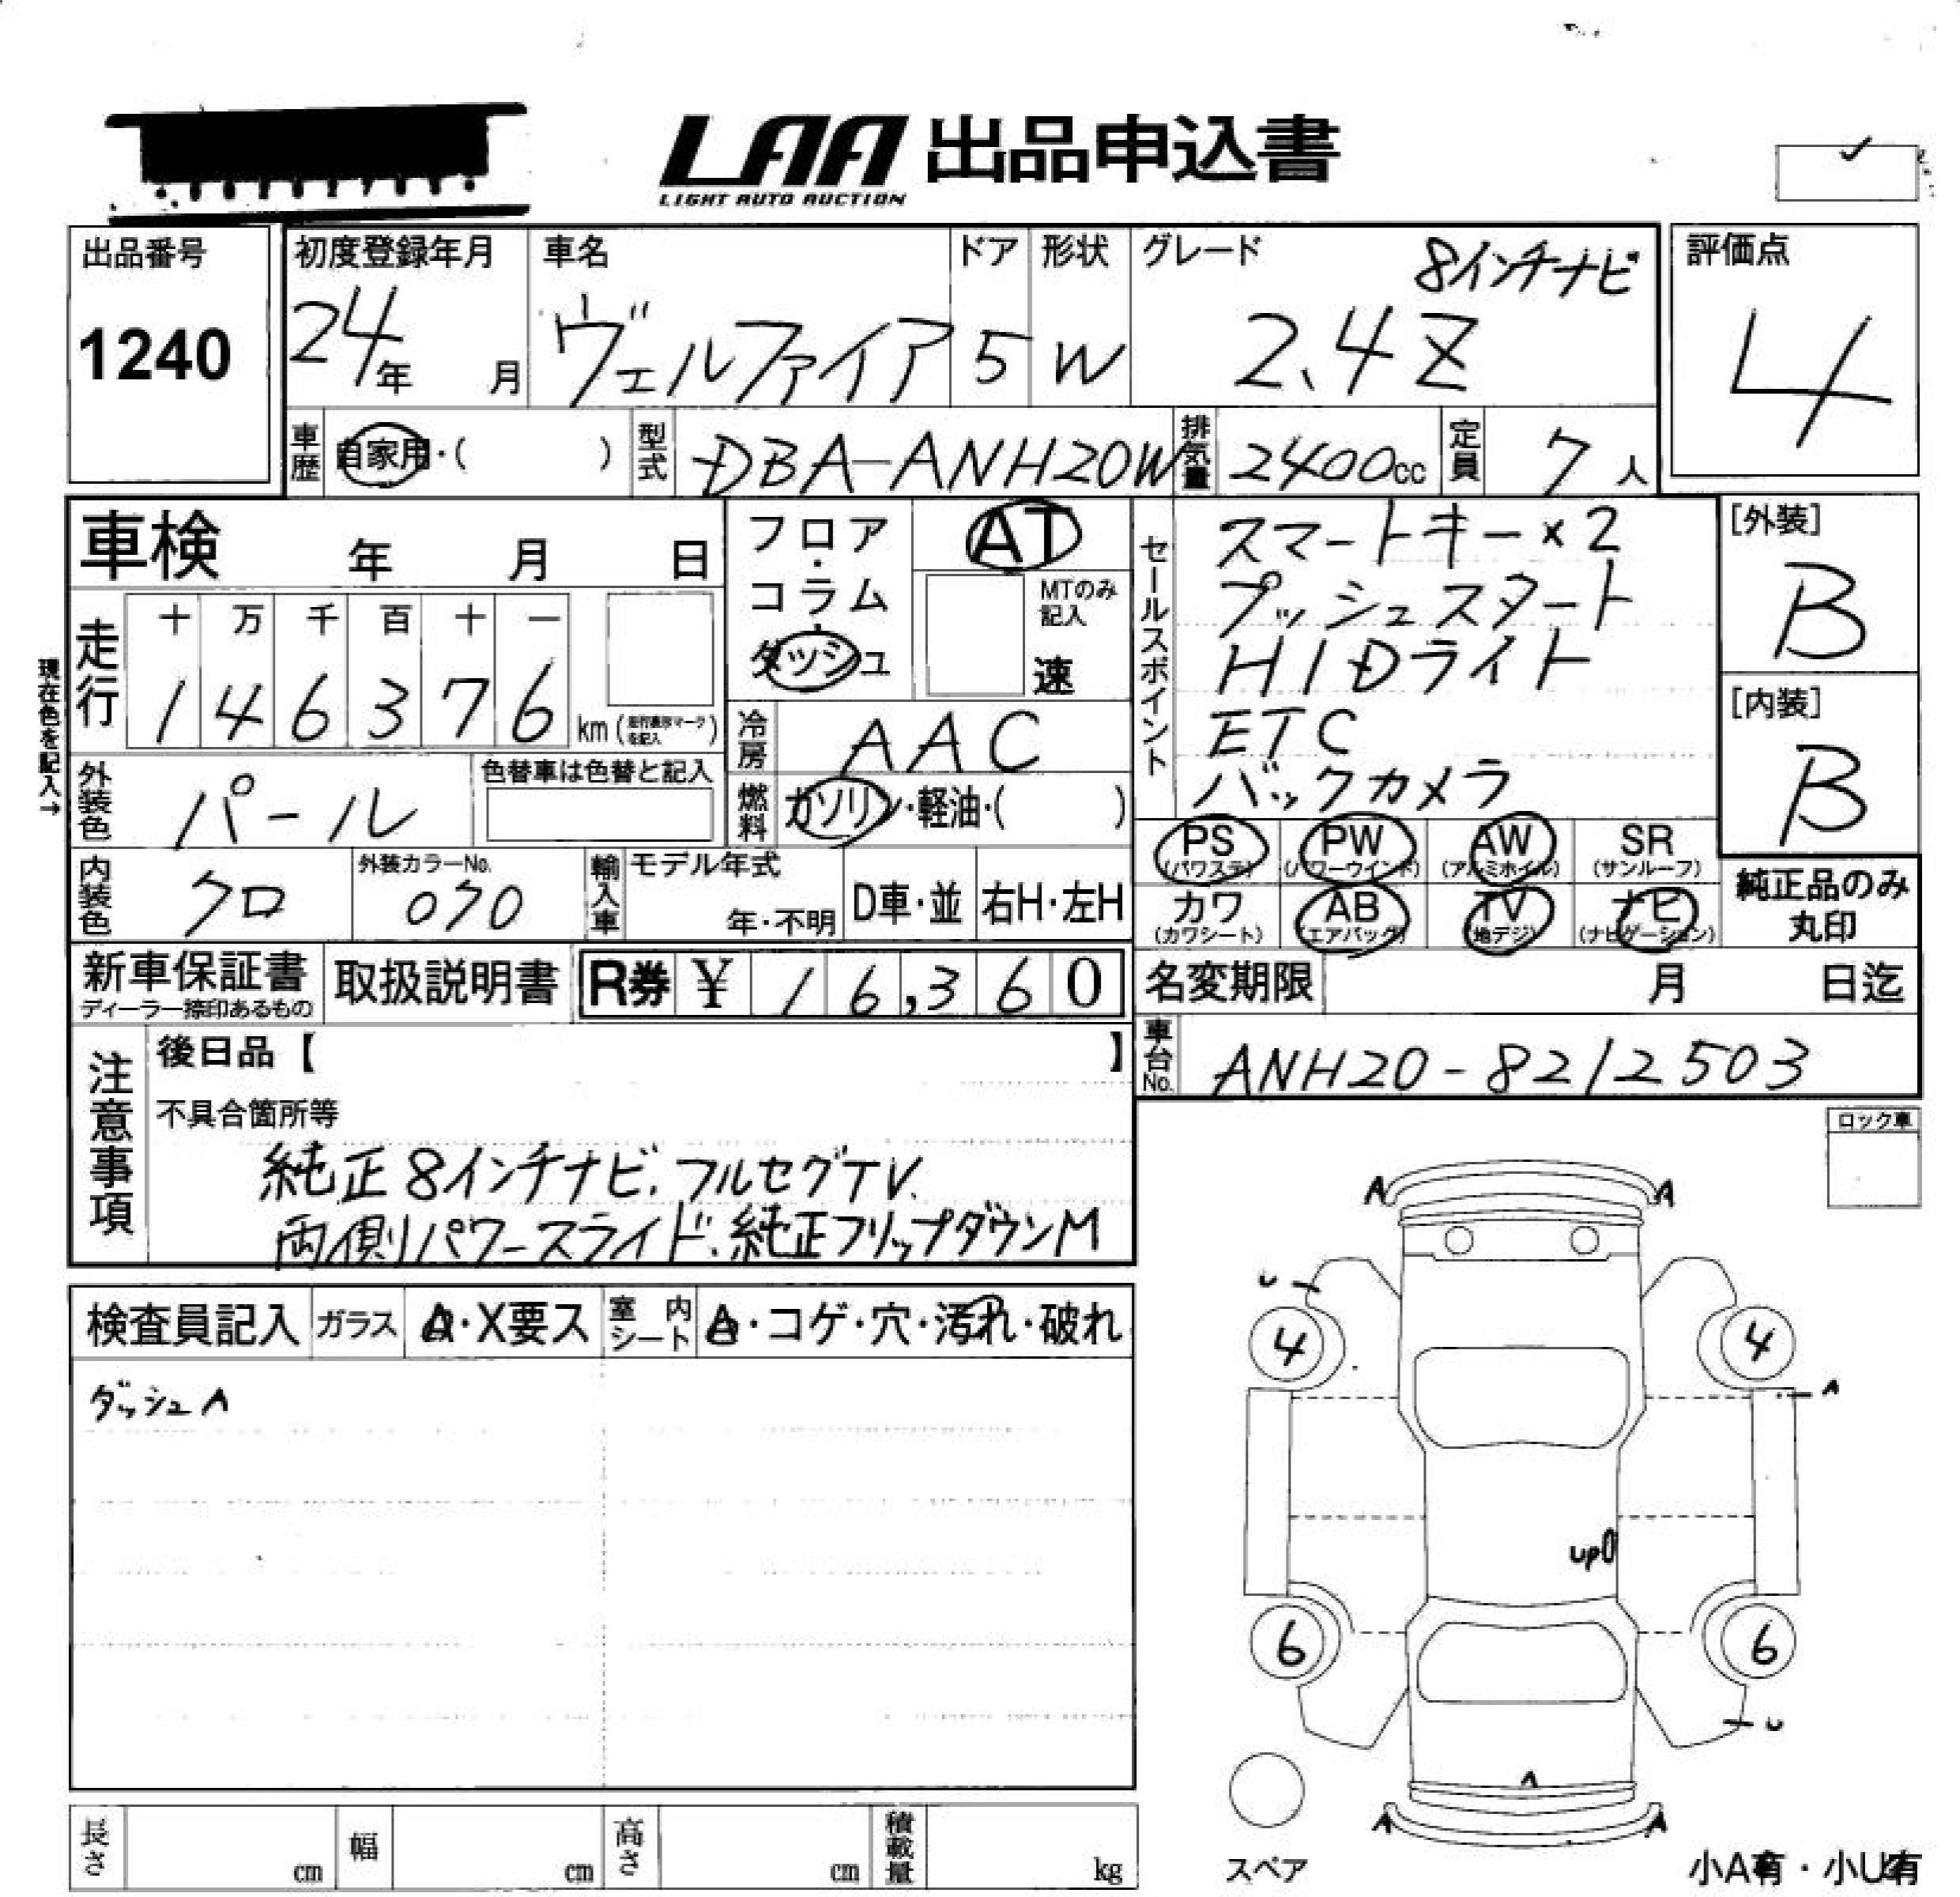 LAA 出品申込書
LIGHT AUTO AUCTION
出品番号
1240
初度登録年月
24年 月
車名
ヴェルファイア
ドア
5
形状
W
グレード
8インチナビ
2.4Z
評価点
4
車歴
自家用・( )
型式
DBA-ANH20W
排気量
2400cc
定員
7人
車検 年 月 日
走行
十 万 千 百 十 一
1 4 6 3 7 6 km
現在色を記入→
外装色
パール
色替車は色替と記入
内装色
クロ
外装カラーNo.
070
フロア・コラム・ダッシュ
AT
MTのみ記入
速
冷房
AAC
燃料
ガソリン・軽油・( )
輸入車
モデル年式
年・不明
D車・並
右H・左H
セールスポイント
スマートキー×2
プッシュスタート
HIDライト
ETC
バックカメラ
[外装]
B
[内装]
B
PS (パワステ)
PW (パワーウインド)
AW (アルミホイル)
SR (サンルーフ)
カワ (カワシート)
AB (エアバック)
TV (地デジ)
ナビ (ナビゲーション)
純正品のみ
丸印
新車保証書
ディーラー捺印あるもの
取扱説明書
R券 ¥ 16,360
名変期限 月 日迄
車台No.
ANH20-8212503
注意事項
後日品【 】
不具合箇所等
純正8インチナビ.フルセグTV.
両側パワースライド.純正フリップダウンM
検査員記入
ガラス
A・X要ス
室内シート
A・コゲ・穴・汚れ・破れ
ダッシュA
ロック車
A A
U
4 4
A
up
6 6
U
A
A A
スペア
小A有・小U有
長さ cm
幅 cm
高さ cm
積載量 kg